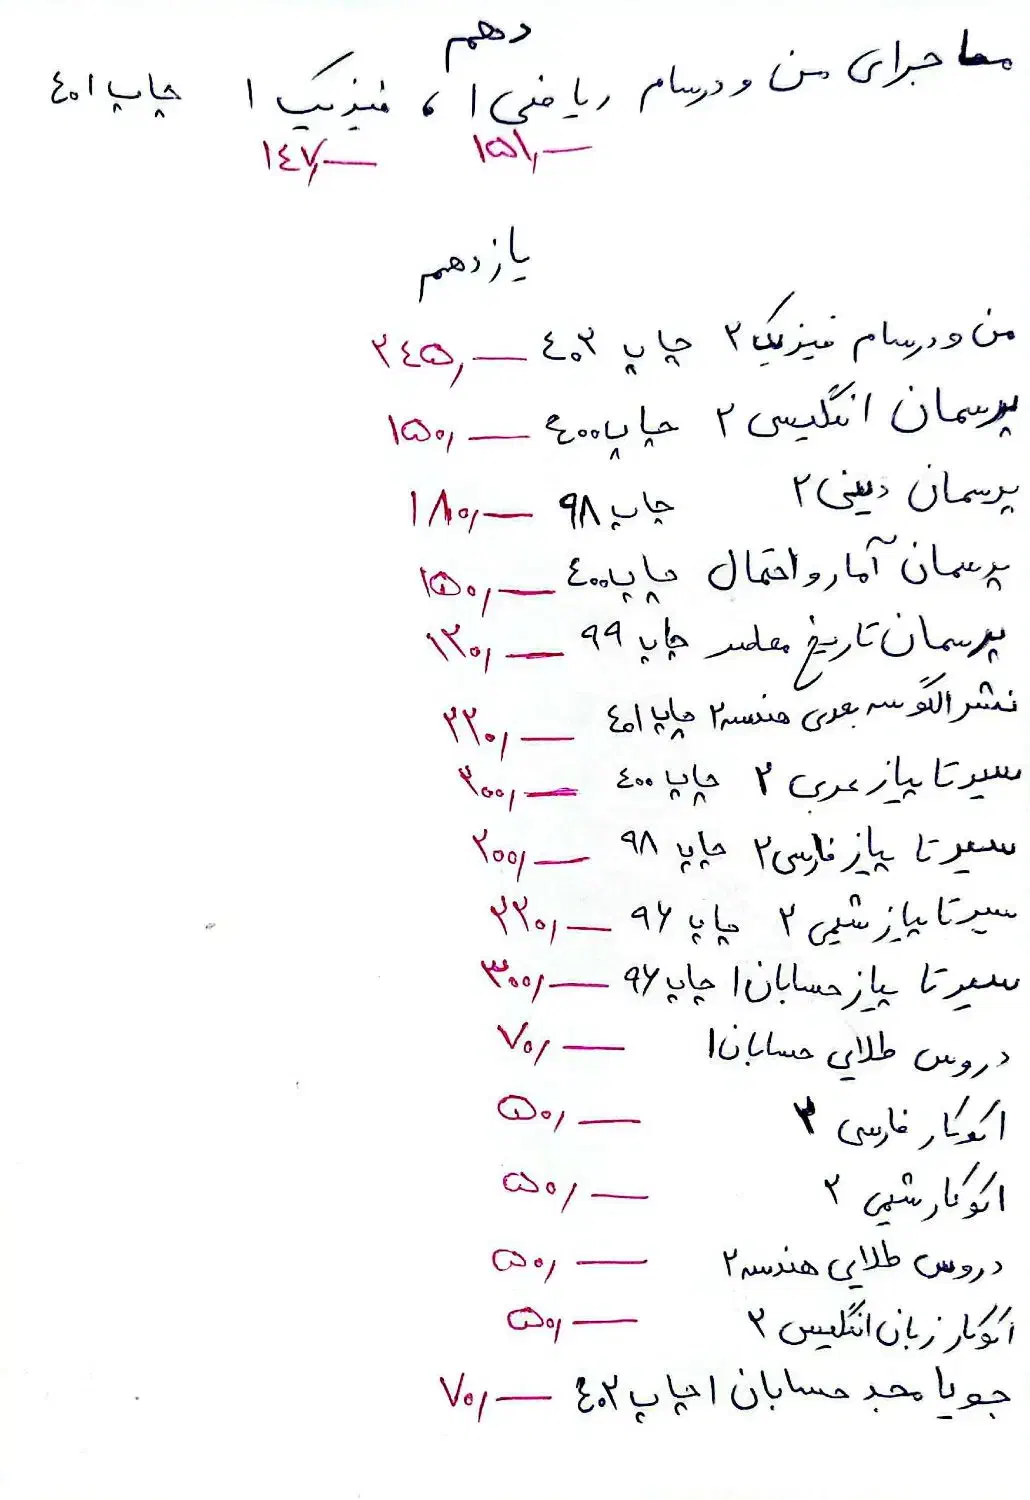 دهم
ماجرای من و درسام ریاضی ۱ ، فیزیک ۱ چاپ ۴۰۱
۱۵۱٫— ۱۴۷٫—
یازدهم
من و درسام فیزیک ۲ چاپ ۴۰۲ —٫۲۴۵
پرسمان انگلیسی ۲ چاپ ۴۰۰ —٫۱۵۰
پرسمان دینی ۲ چاپ ۹۸ —٫۱۸۰
پرسمان آمار و احتمال چاپ ۴۰۰ —٫۱۵۰
پرسمان تاریخ معاصر چاپ ۹۹ —٫۱۲۰
نشر الگو سه بعدی هندسه ۲ چاپ ۴۰۱ —٫۲۲۰
سیر تا پیاز عربی ۲ چاپ ۴۰۰ —٫۲۰۰
سیر تا پیاز فارسی ۲ چاپ ۹۸ —٫۲۰۰
سیر تا پیاز شیمی ۲ چاپ ۹۶ —٫۲۲۰
سیر تا پیاز حسابان ۱ چاپ ۹۶ —٫۳۰۰
دروس طلایی حسابان ۱ —٫۷۰
اکوکار فارسی ۲ —٫۵۰
اکوکار شیمی ۲ —٫۵۰
دروس طلایی هندسه ۲ —٫۵۰
اکوکار زبان انگلیسی ۲ —٫۵۰
جویا مجد حسابان ۱ چاپ ۴۰۲ —٫۷۰